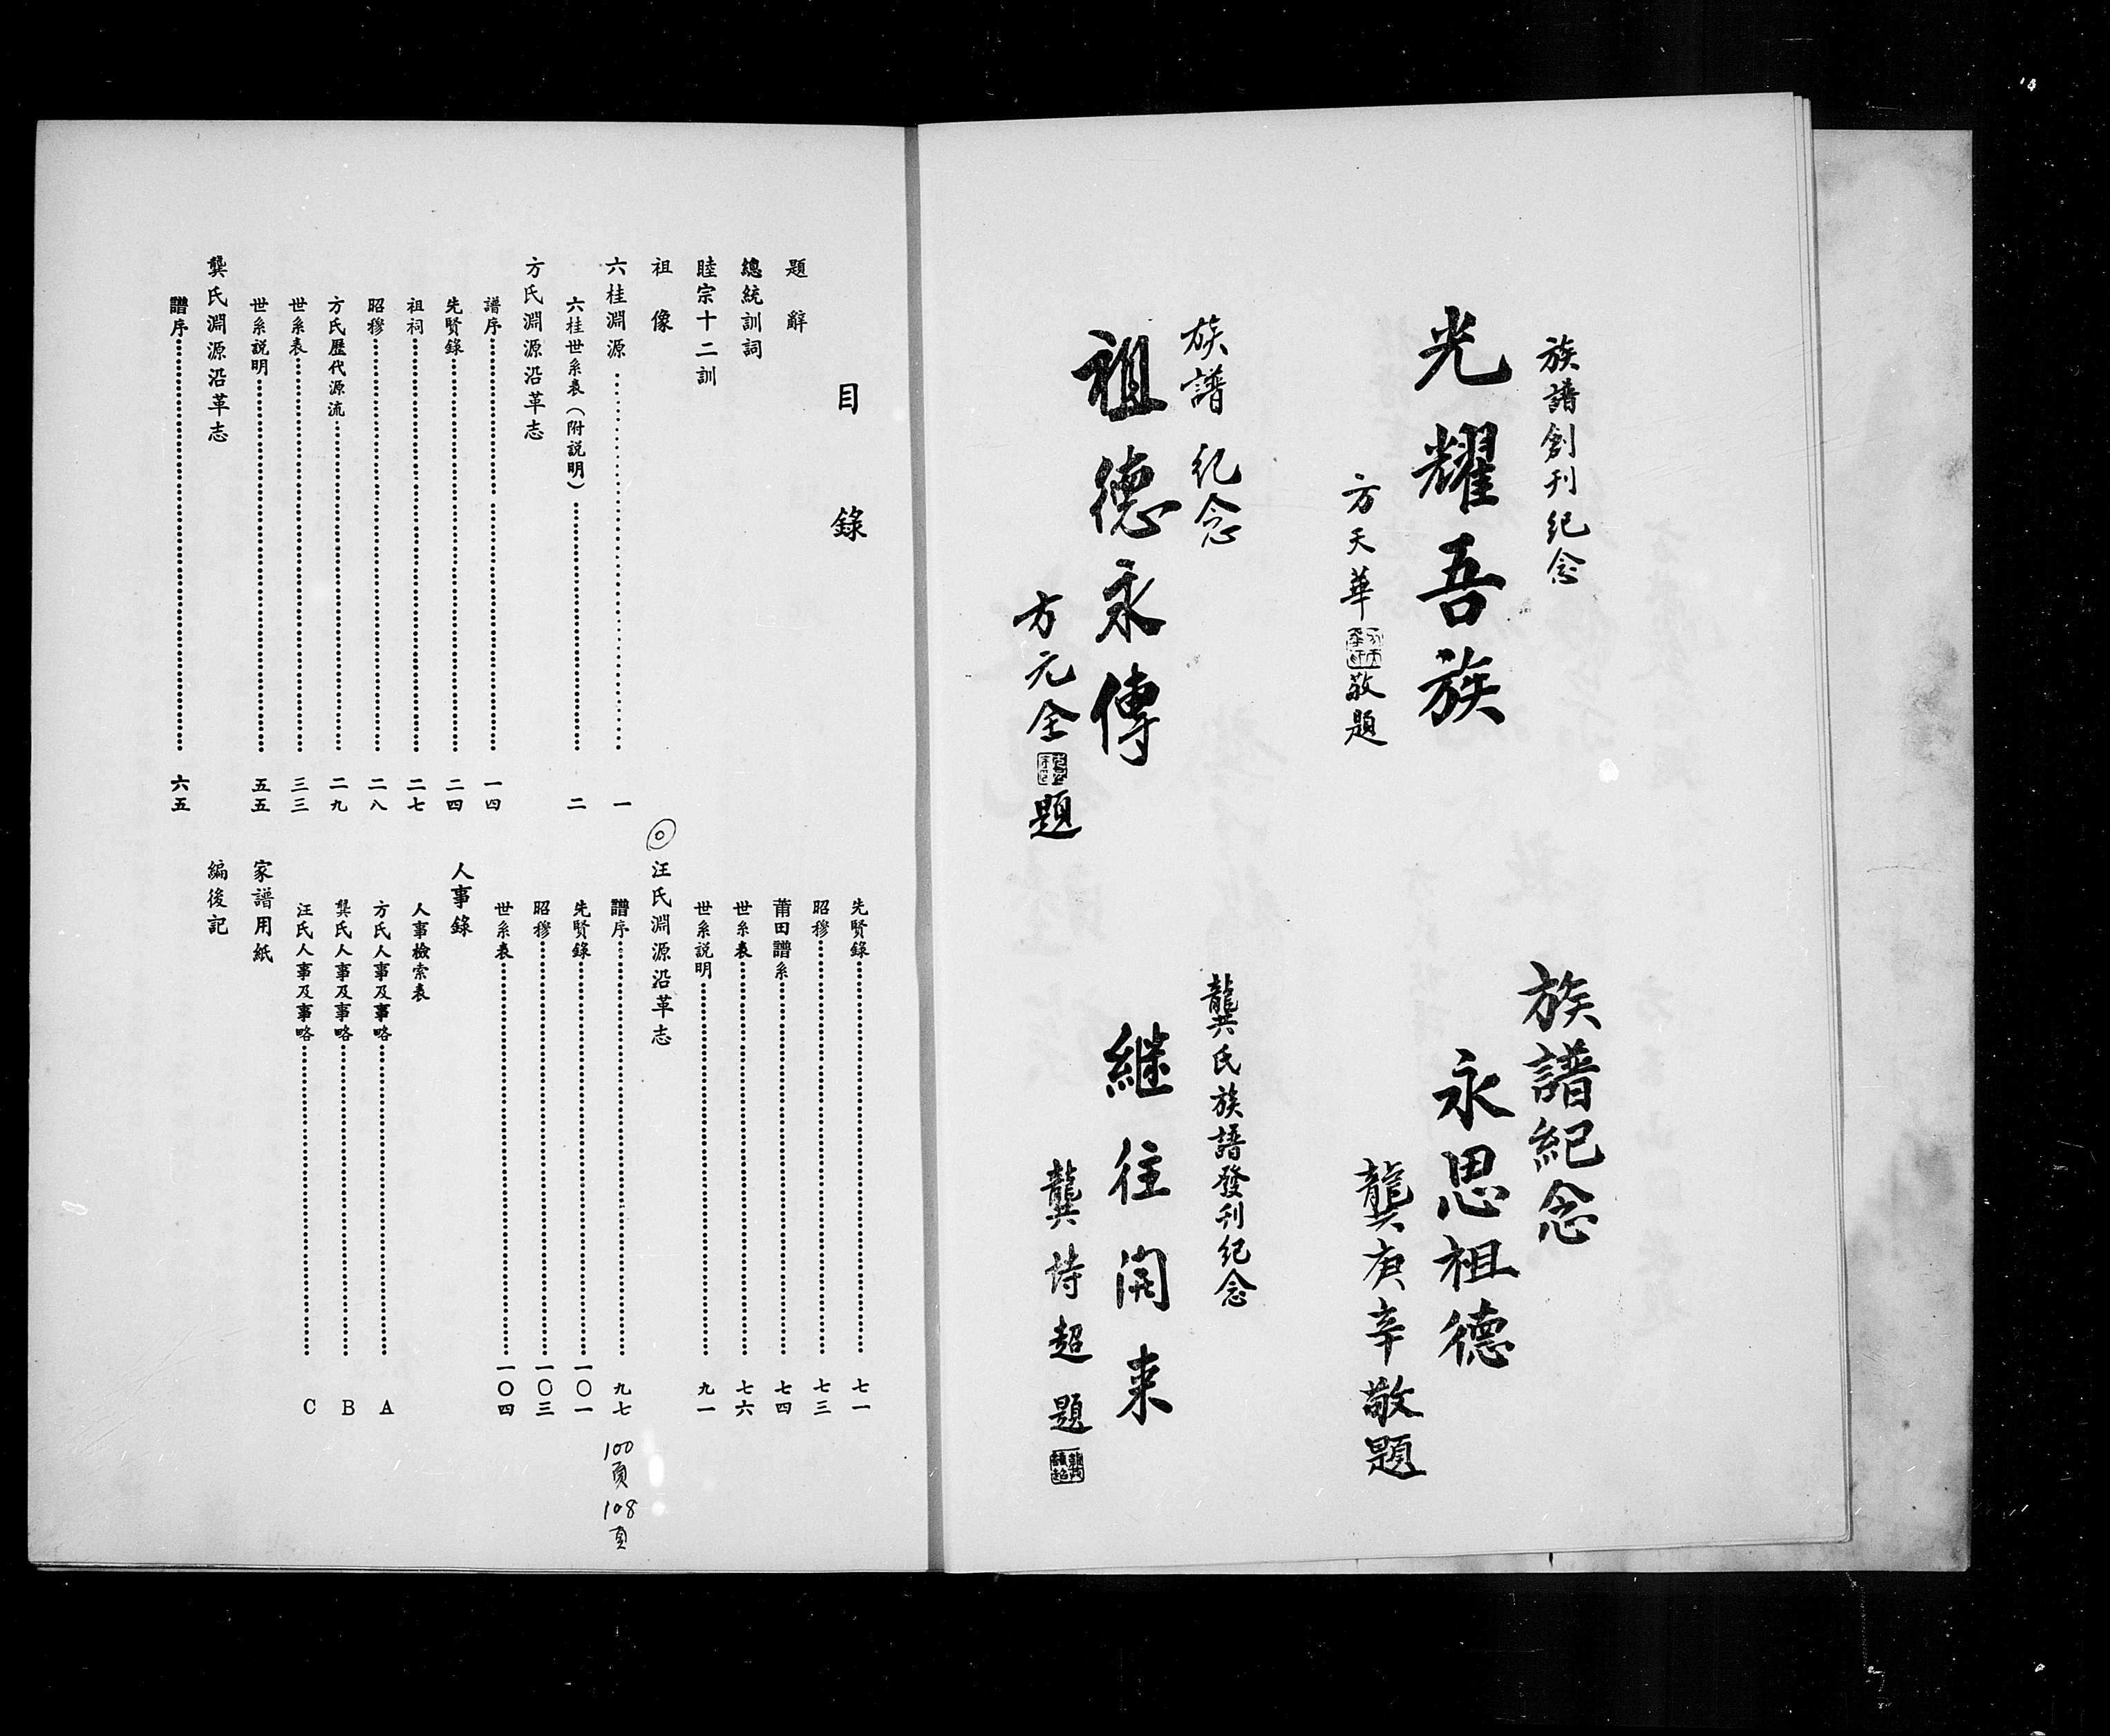 族譜創刊紀念
光耀吾族
方天華敬題
族譜紀念
永思祖德
龔庚辛敬題
族譜紀念
祖德永傳
方元全題
龔氏族譜發刊纪念
継往開来
龔詩超題
目錄
題辭
總統訓詞
睦宗十二訓
祖像
六桂淵源 一
六桂世系表（附説明） 二
方氏淵源沿革志
譜序 一四
先賢錄 二四
祖祠 二七
昭穆 二八
方氏歷代源流 二九
世系表 三三
世系説明 五五
龔氏淵源沿革志
譜序 六五
先賢錄 七一
昭穆 七三
莆田譜系 七四
世系表 七六
世系説明 九一
◎ 汪氏淵源沿革志
譜序 九七
100頁 108頁
先賢錄 一〇一
昭穆 一〇三
世系表 一〇四
人事錄
人事檢索表
方氏人事及事略 A
龔氏人事及事略 B
汪氏人事及事略 C
家譜用紙
編後記